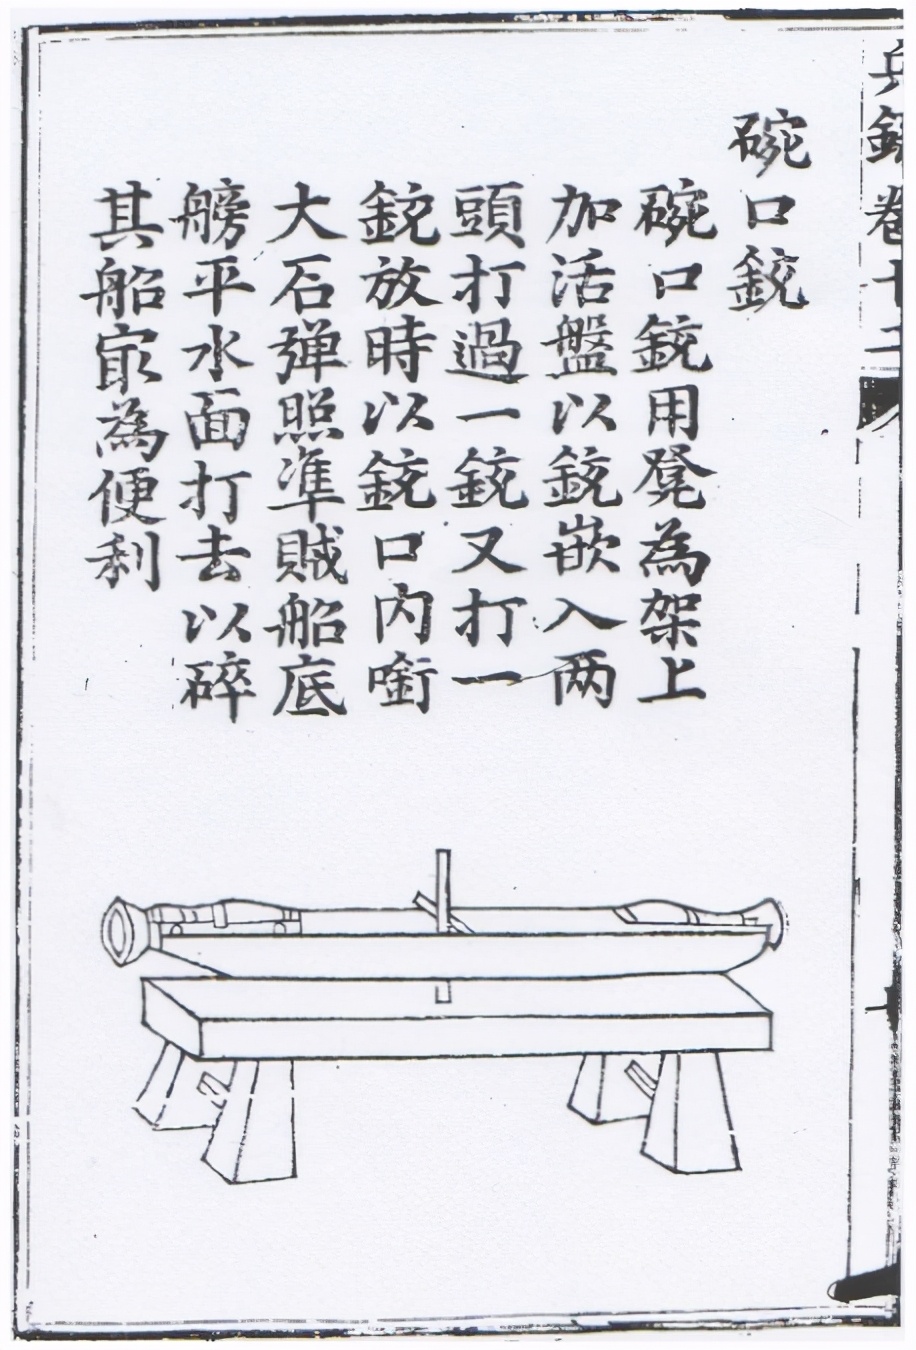 兵録卷十二
碗口銃
碗口銃用凳為架上
加活盤以銃嵌入两
頭打過一銃又打一
銃放時以銃口內啣
大石弹照準賊船底
艕平水面打去以碎
其船㝡為便利